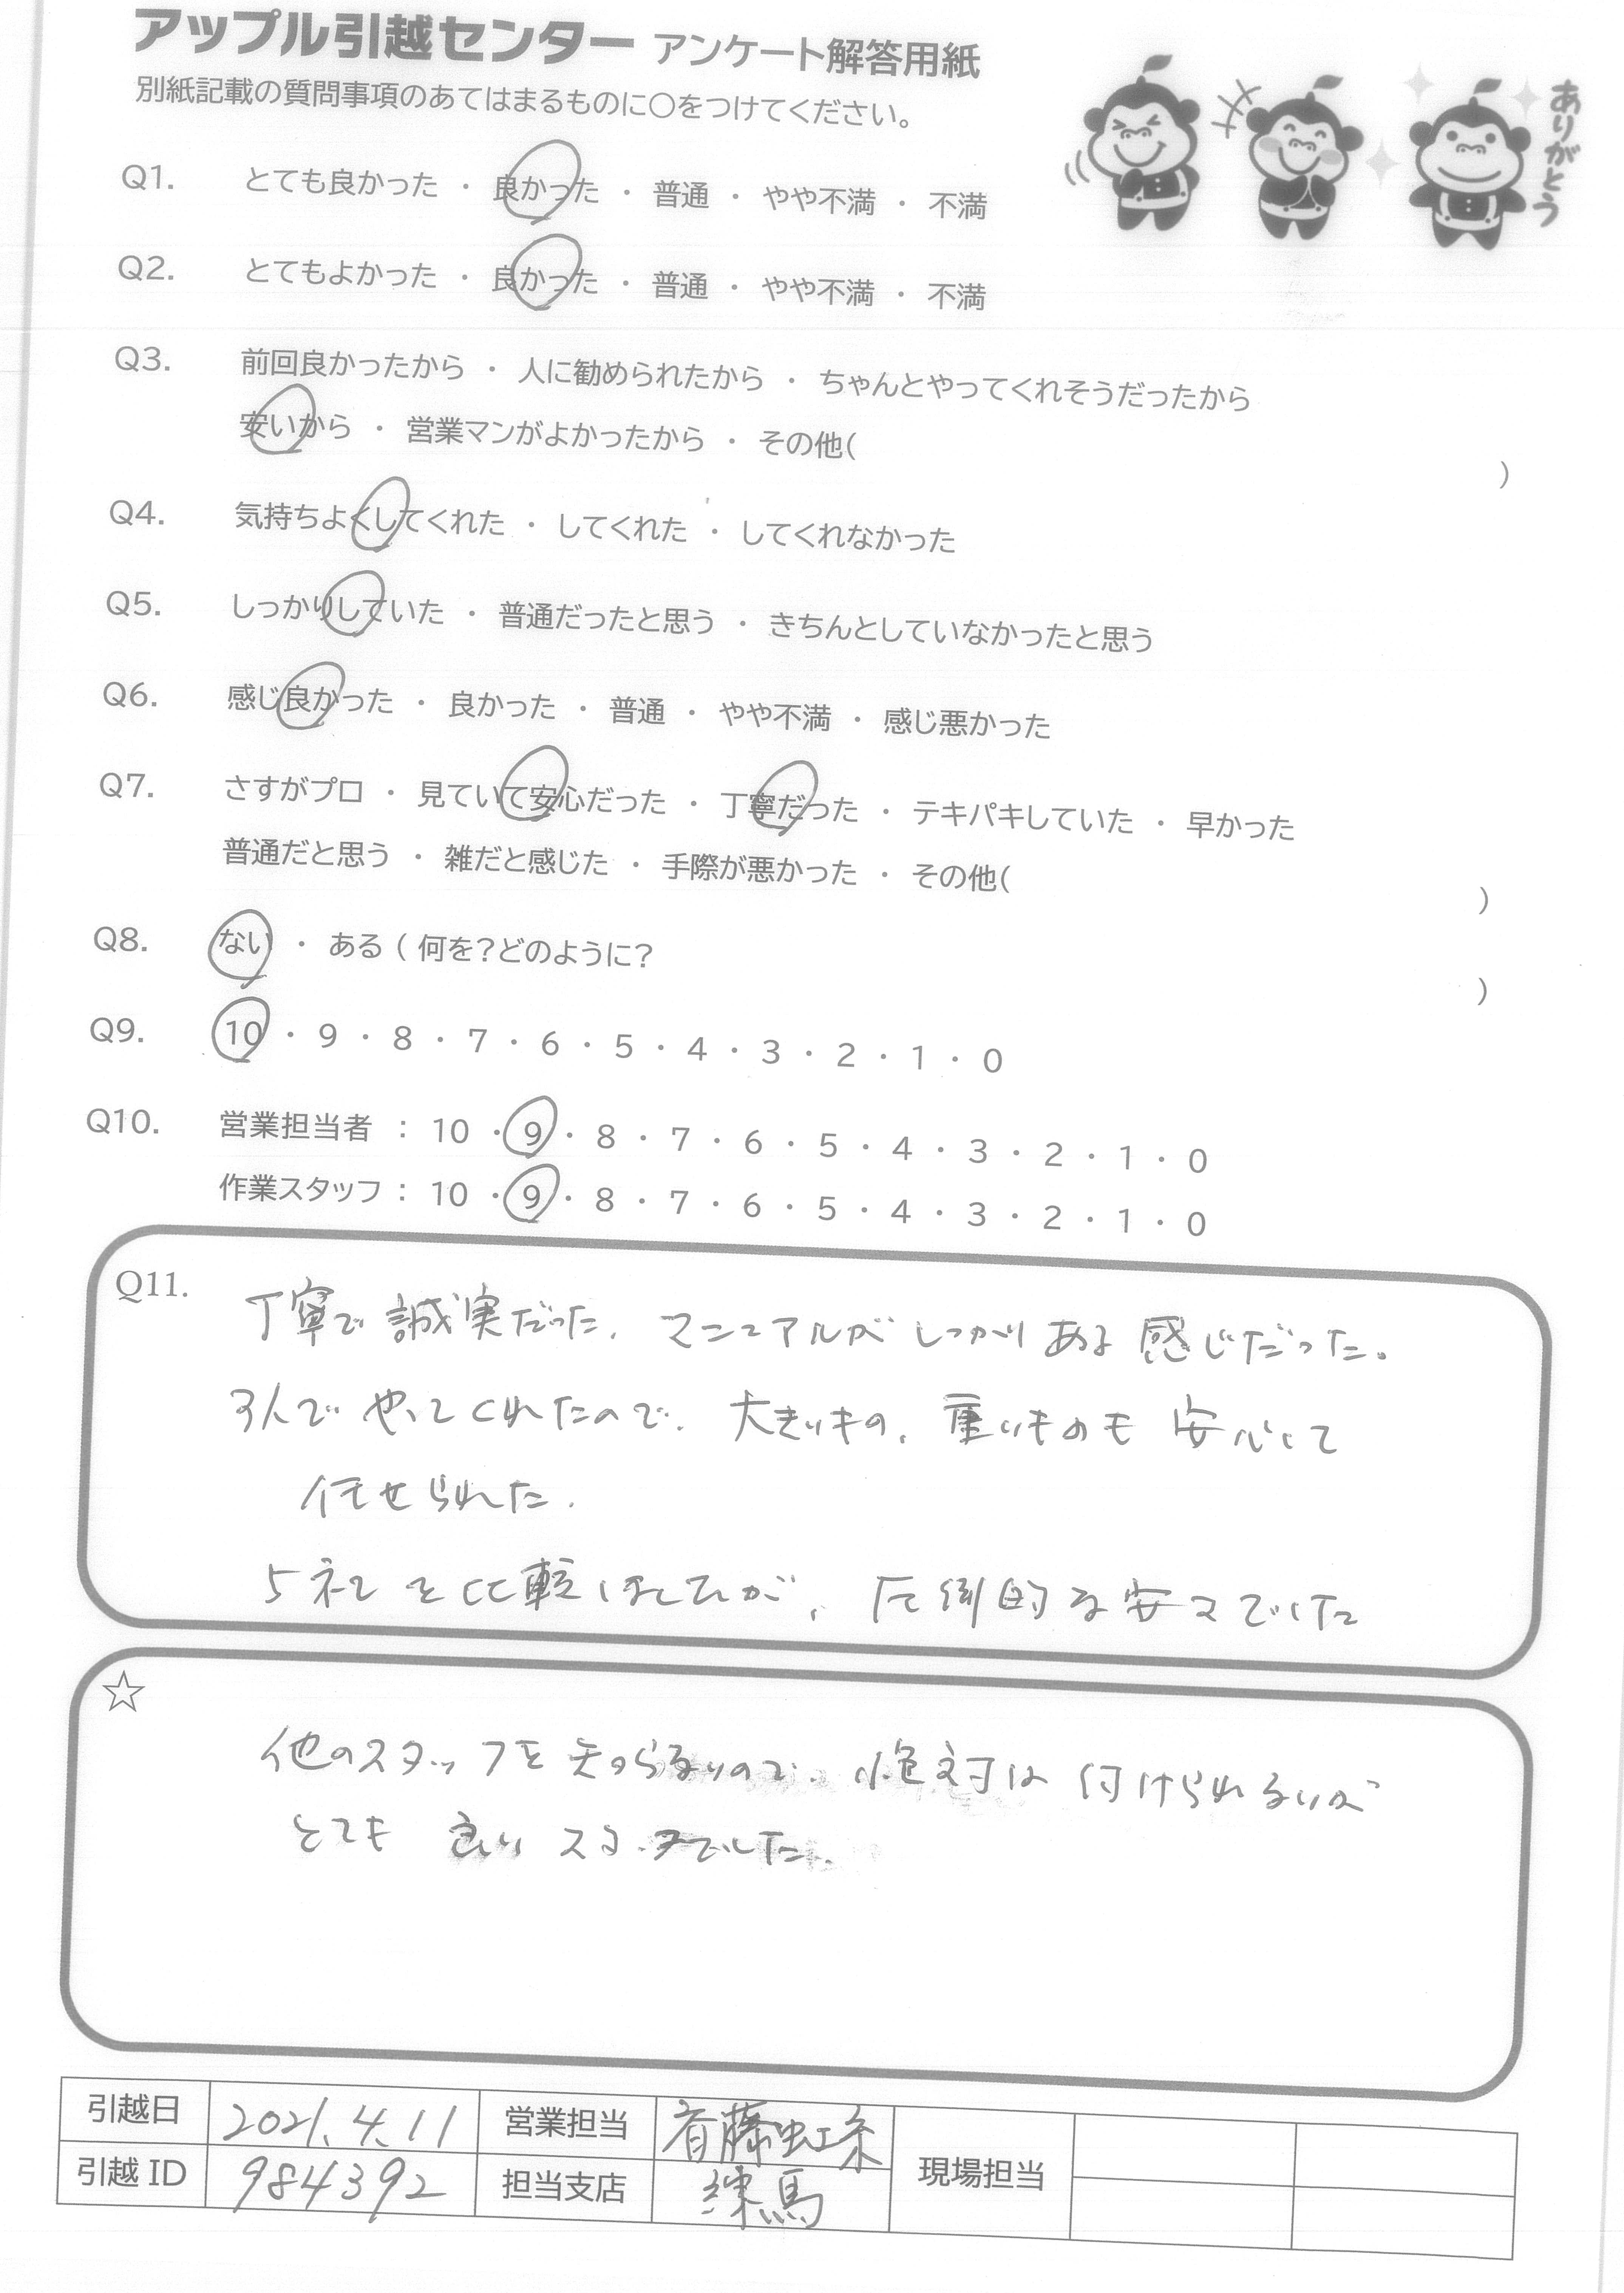 アップル引越センター アンケート解答用紙
別紙記載の質問事項のあてはまるものに○をつけてください。
ありがとう
Q1. とても良かった ・ 良かった ・ 普通 ・ やや不満 ・ 不満
Q2. とてもよかった ・ 良かった ・ 普通 ・ やや不満 ・ 不満
Q3. 前回良かったから ・ 人に勧められたから ・ ちゃんとやってくれそうだったから
安いから ・ 営業マンがよかったから ・ その他( )
Q4. 気持ちよくしてくれた ・ してくれた ・ してくれなかった
Q5. しっかりしていた ・ 普通だったと思う ・ きちんとしていなかったと思う
Q6. 感じ良かった ・ 良かった ・ 普通 ・ やや不満 ・ 感じ悪かった
Q7. さすがプロ ・ 見ていて安心だった ・ 丁寧だった ・ テキパキしていた ・ 早かった
普通だと思う ・ 雑だと感じた ・ 手際が悪かった ・ その他( )
Q8. ない ・ ある ( 何を?どのように? )
Q9. 10 ・ 9 ・ 8 ・ 7 ・ 6 ・ 5 ・ 4 ・ 3 ・ 2 ・ 1 ・ 0
Q10. 営業担当者 : 10 ・ 9 ・ 8 ・ 7 ・ 6 ・ 5 ・ 4 ・ 3 ・ 2 ・ 1 ・ 0
作業スタッフ : 10 ・ 9 ・ 8 ・ 7 ・ 6 ・ 5 ・ 4 ・ 3 ・ 2 ・ 1 ・ 0
Q11. 丁寧で誠実だった。マニュアルがしっかりある感じだった。
3人でやってくれたので、大きいもの、重いものも安心して
任せられた。
5社を比較しましたが、圧倒的な安さでした
☆
他のスタッフを知らないので、絶対は付けられないが
とても 良い スタッフでした。
引越日 2021.4.11 営業担当 斉藤虹糸 現場担当
引越 ID 984392 担当支店 練馬